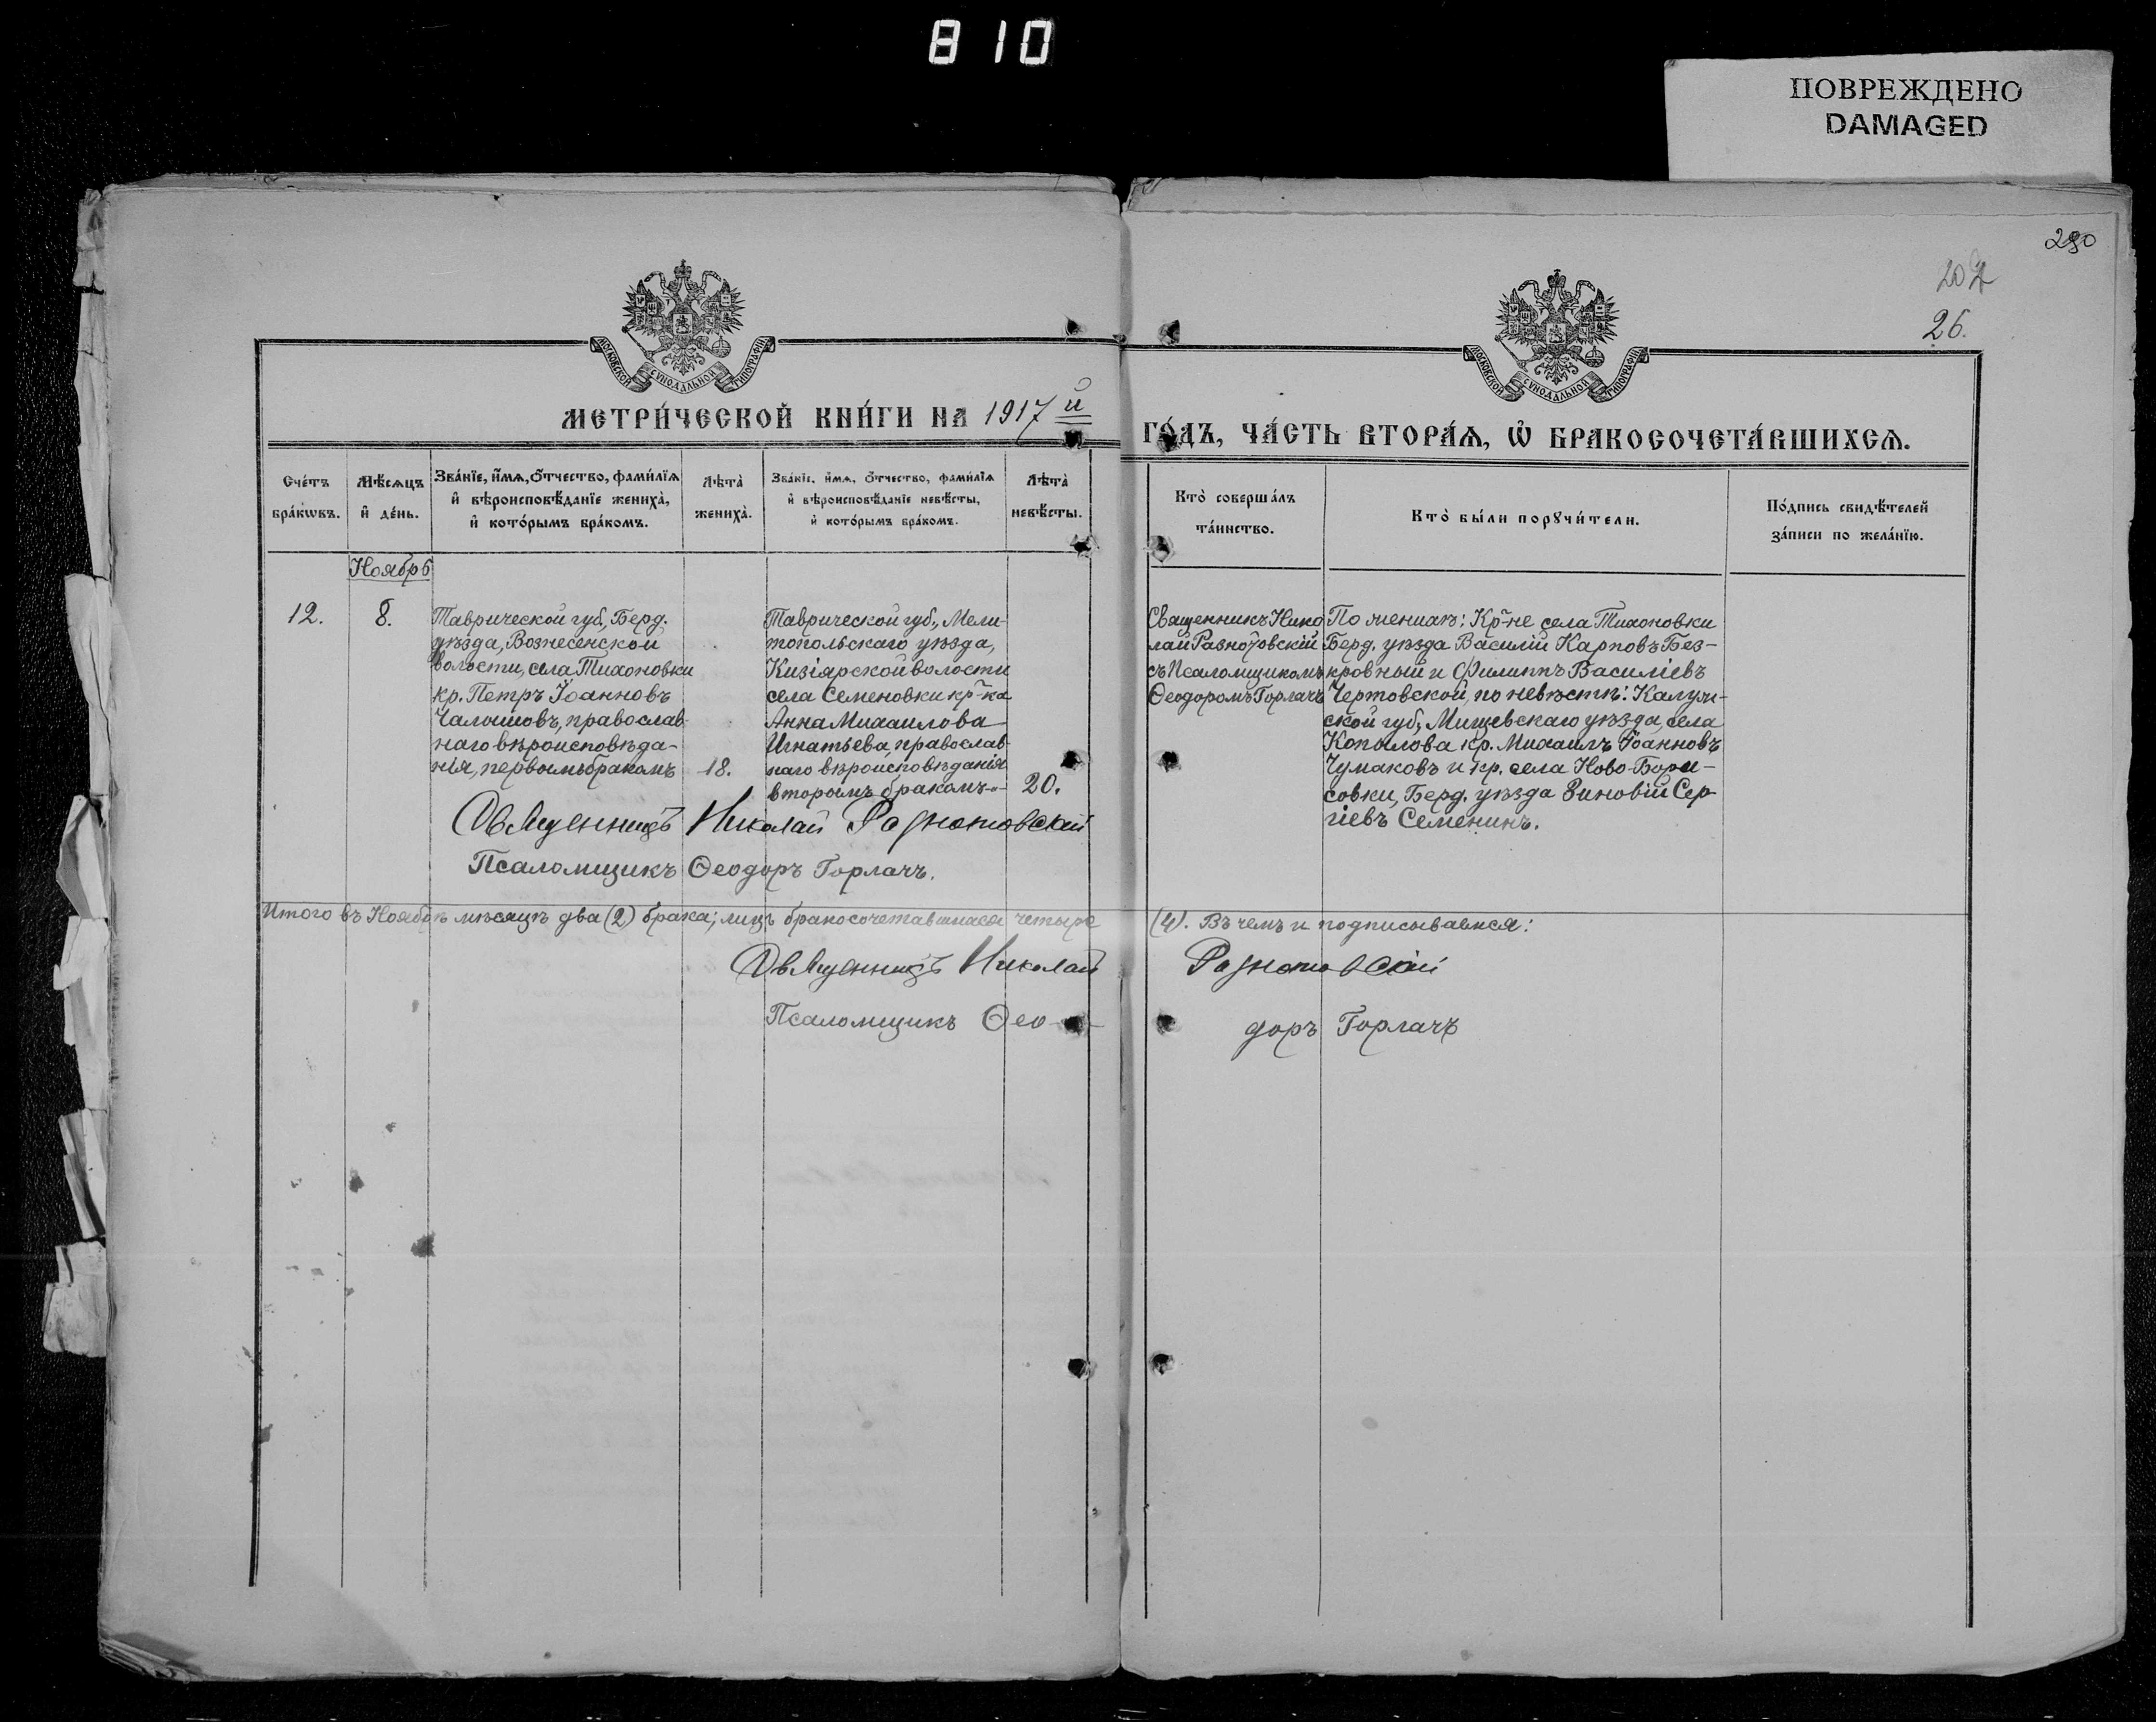 810
ПОВРЕЖДЕНО
DAMAGED
290
202
26.
МОСКОВСКОЙ СѴНОДАЛЬНОЙ ТИПОГРАФІИ
МОСКОВСКОЙ СѴНОДАЛЬНОЙ ТИПОГРАФІИ
МЕТРИ́ЧЕСКОЙ КНИ́ГИ НА 1917 й
ГО́ДЪ, ЧА́СТЬ ВТОРА́Ѧ, Ѡ҆ БРАКОСОЧЕТА́ВШИХСѦ.
Сче́тъ
бра́кѡвъ.
Мѣ́сѧцъ
и҆ де́нь.
Зва́нїе, и҆́мѧ, ѻ҆́тчество, фами́лїѧ
и҆ вѣроисповѣ́данїе жениха̀,
и҆ кото́рымъ бра́комъ.
Лѣ́та̀
жениха̀.
Зва́нїе, и҆́мѧ, ѻ҆́тчество, фами́лїѧ
и҆ вѣроисповѣ́данїе невѣ́сты,
и҆ кото́рымъ бра́комъ.
Лѣ́та̀
невѣ́сты.
Кто̀ соверша́лъ
та́инство.
Кто̀ бы́ли порꙋчи́тели.
По́дпись свидѣ́телей
за́писи по жела́нїю.
Ноябрь
12.
8.
Таврической губ., Берд.
уѣзда, Вознесенской
волости, села Тихоновки
кр. Петръ Іоанновъ
Чалышовъ, православ-
наго вѣроисповѣда-
нія, первымъ бракомъ
18.
Таврической губ., Мели-
топольскаго уѣзда,
Кизіярской волости
села Семеновки кр-ка
Анна Михаилова
Игнатьева, православ-
наго вѣроисповѣданія
вторымъ бракомъ
20.
Священникъ Нико
лай Разнотовскій
съ Псаломщикомъ
Ѳеодоромъ Горлачъ
По женихѣ: Кр-не села Тихоновки
Берд. уѣзда Василій Карповъ Без-
кровный и Филиппъ Василіевъ
Чертовской, по невѣстѣ: Калуж-
ской губ., Мищевскаго уѣзда, села
Копылова кр. Михаилъ Іоанновъ
Чумаковъ и кр. села Ново-Бори-
совки, Берд. уѣзда Зиновій Сер-
гіевъ Семенинъ.
Священникъ Николай Разнотовскій
Псаломщикъ Ѳеодоръ Горлачъ.
Итого въ Ноябрѣ мѣсяцѣ два (2) брака; лицъ бракосочетавшихся четыре
(4). Въ чемъ и подписываемся:
Священникъ Николай
Разнотовскій
Псаломщикъ Ѳео-
доръ Горлачъ